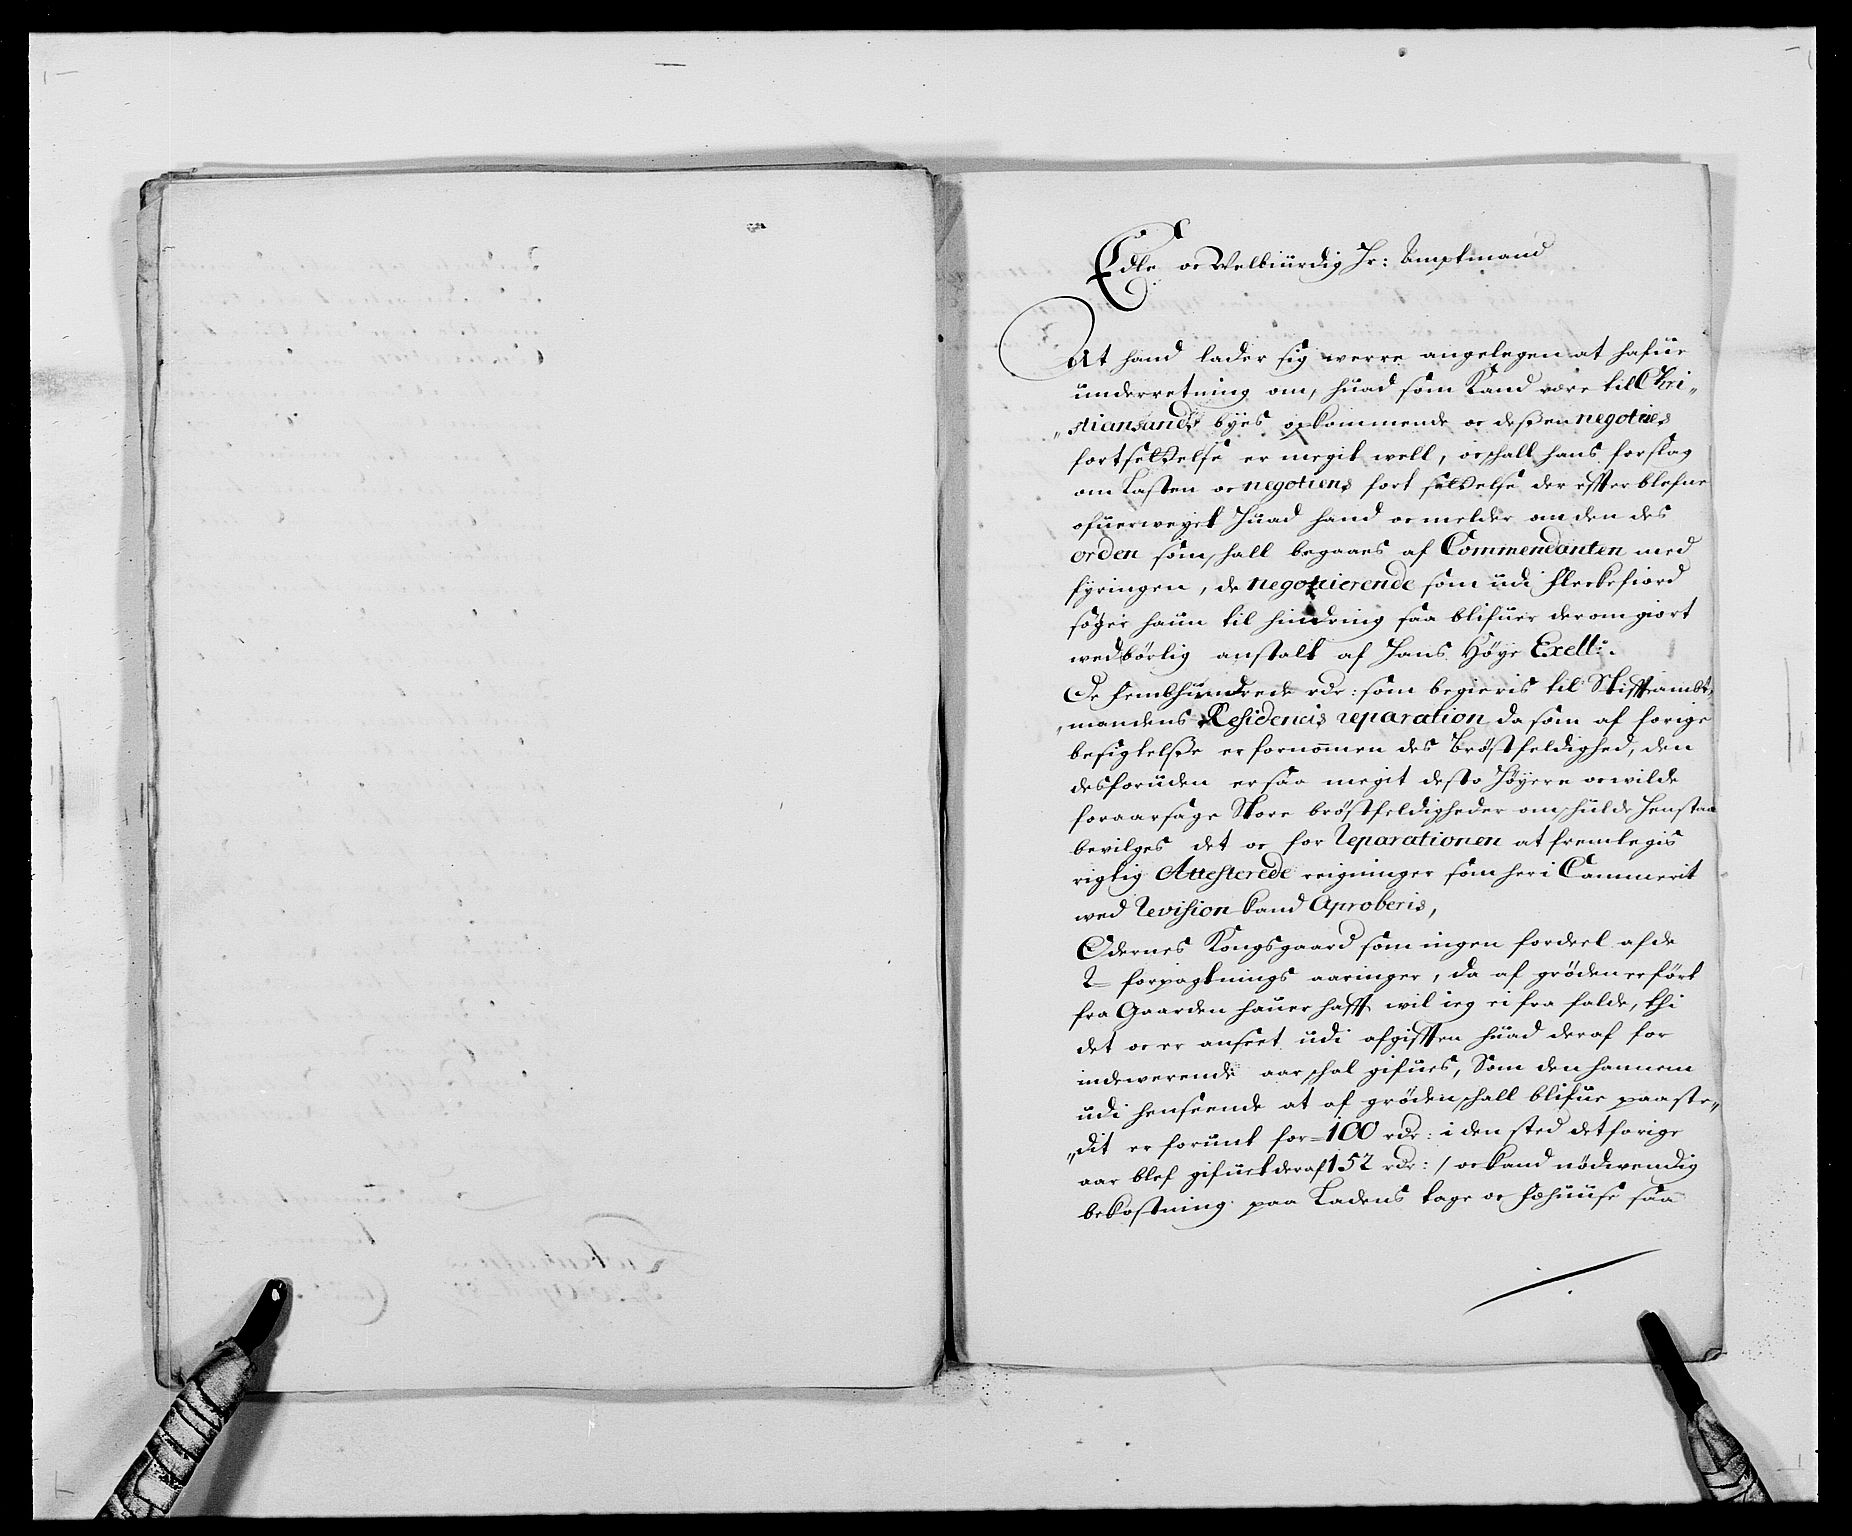 Edle oc Velbiürdig Hr: Amptmand
At hand lader sig werre angelegen at hafue
underretning om, huad som Kand være til Chri„
„stiansands byes opkommende oc dessen negoties
fortsettelse er megit well, oc shall hans forslag
om Lasten oc negotiens fort settelse der effter blefue
ofuerweyet Huad hand oc melder om den des
orden som shall begaaes af Commendanten med
fyringen, de negotierende som udi Fleckefiord
søger haun til hindring saa blifuer derom giort
wedbørlig anstalt af Hans Høye Exell:.
De fembhundrede rdr: som begieris til Stifftambt„
„mandens Residencis reparation da som af forige
besigtelsse er fornommen des Brøstfeldighed, den
desforuden er saa megit desto Høyere oc wilde
foraarsage Store brøstfeldigheder om shulde henstaa
bevilges det oc for Reparationen at fremlegis
rigtig Attesterede reigninger som her i Cammerit
wed Revision kand Aproberis,
Odernes Kongsgaard som ingen fordeel af de
2 forpagtnings aaringer, da af grøden er ført
fra Gaarden hauer hafft wil ieg ei fra falde, thi
det oc er anseet udi afgifften huad deraf for
indewerende aar shal gifues, Som den hannem
udi henseende at af grøden shall blifue paaste„
„dit er forunt for 100 rdr: i den sted det forige
aar blef gifuet deraf 152 rdr: / oc kand nødwendig
bekostning paa Ladens tage oc fæhuuse saa